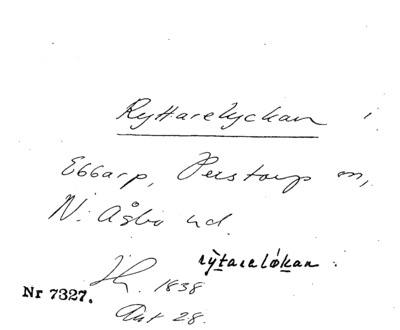 Ryttarelyckan i
Ebbarp, Perstorp sn,
N. Åsbo hd.
rýtarelókan
1838
Nr 7327.
Akt 28.